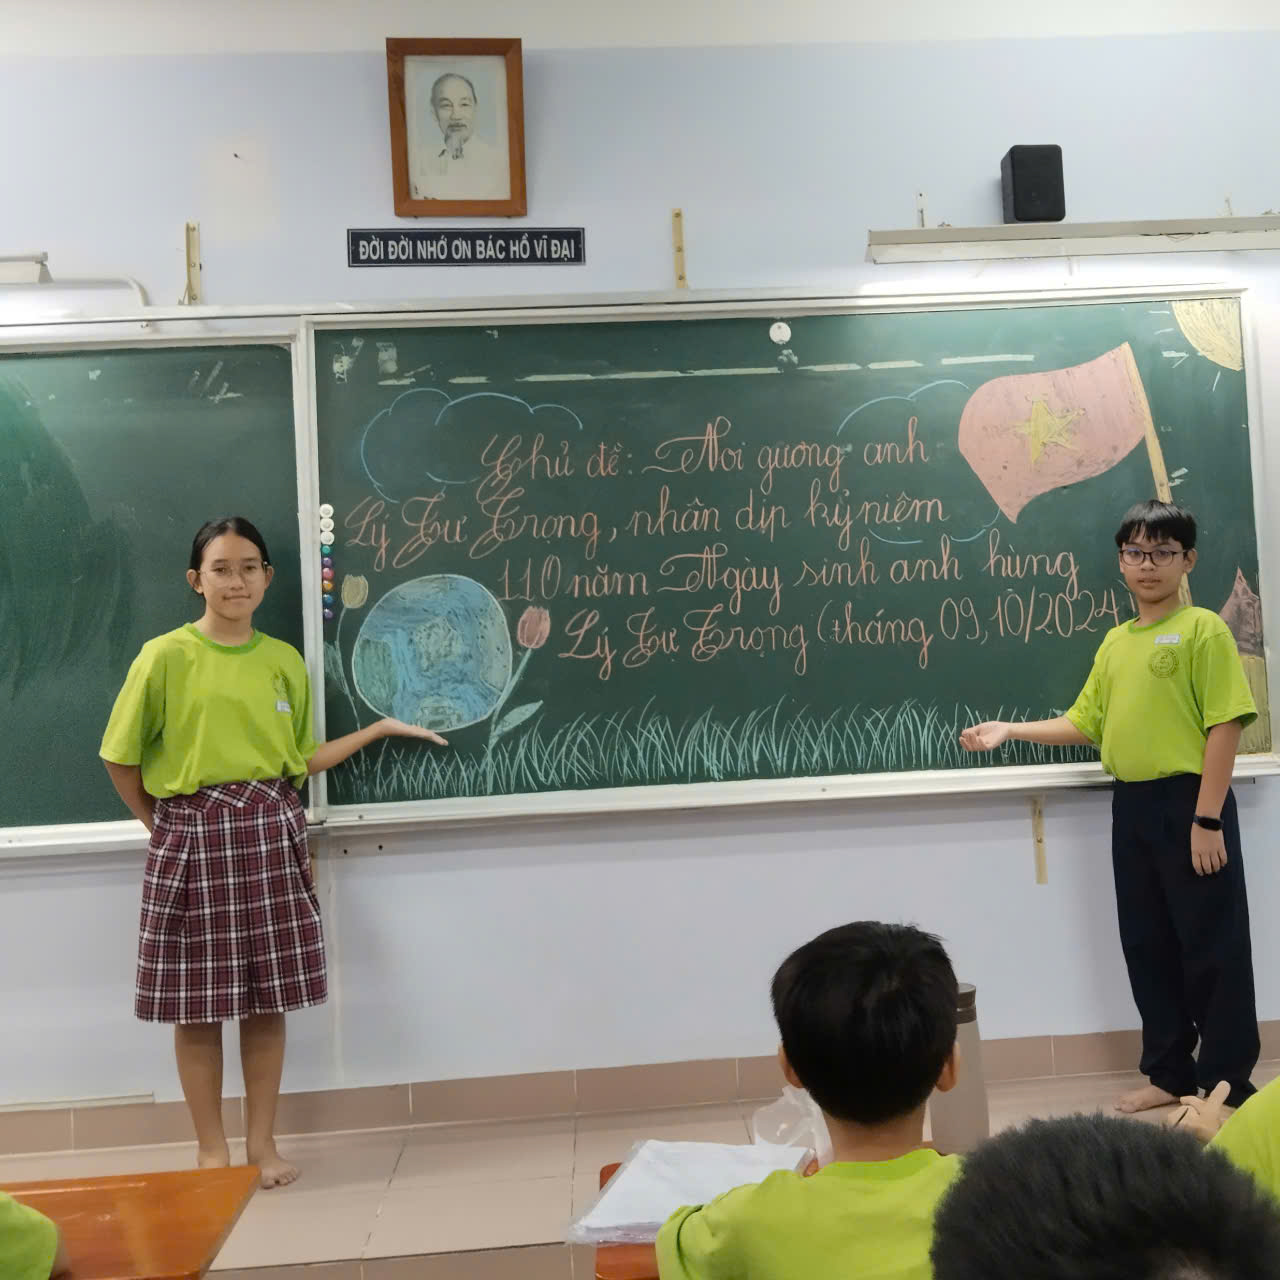 ĐỜI ĐỜI NHỚ ƠN BÁC HỒ VĨ ĐẠI
Chủ đề: Noi gương anh
Lý Tự Trọng, nhân dịp kỷ niệm
110 năm Ngày sinh anh hùng
Lý Tự Trọng (tháng 09, 10/2024)